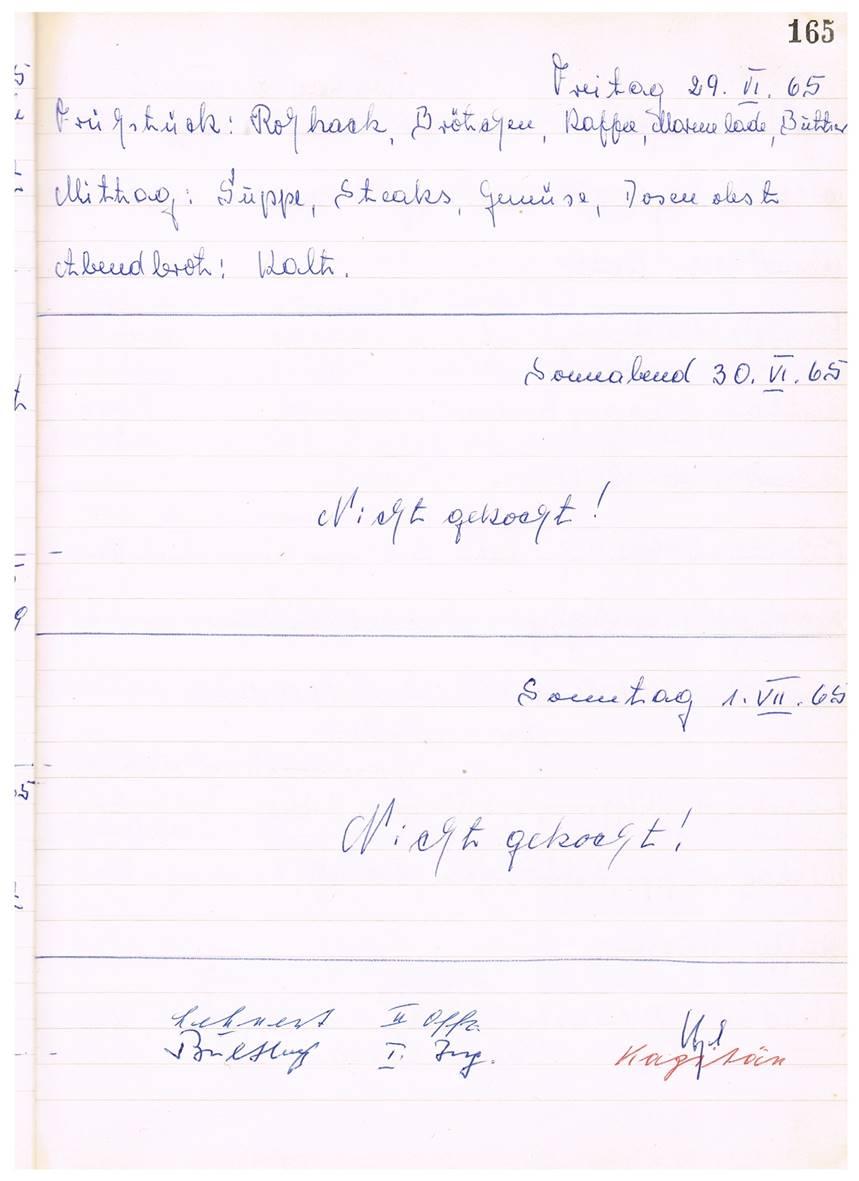 165
Freitag 29. VI. 65
Frühstück: Rohhack, Brötchen, Kaffee, Marmelade, Butter
Mittag: Suppe, Steaks, Gemüse, Dosenobst
Abendbrot: Kalt.
Sonnabend 30. VI. 65
Nicht gekocht!
Sonntag 1. VII. 65
Nicht gekocht!
Lehnert II Offz.
I. Ing.
Kapitän